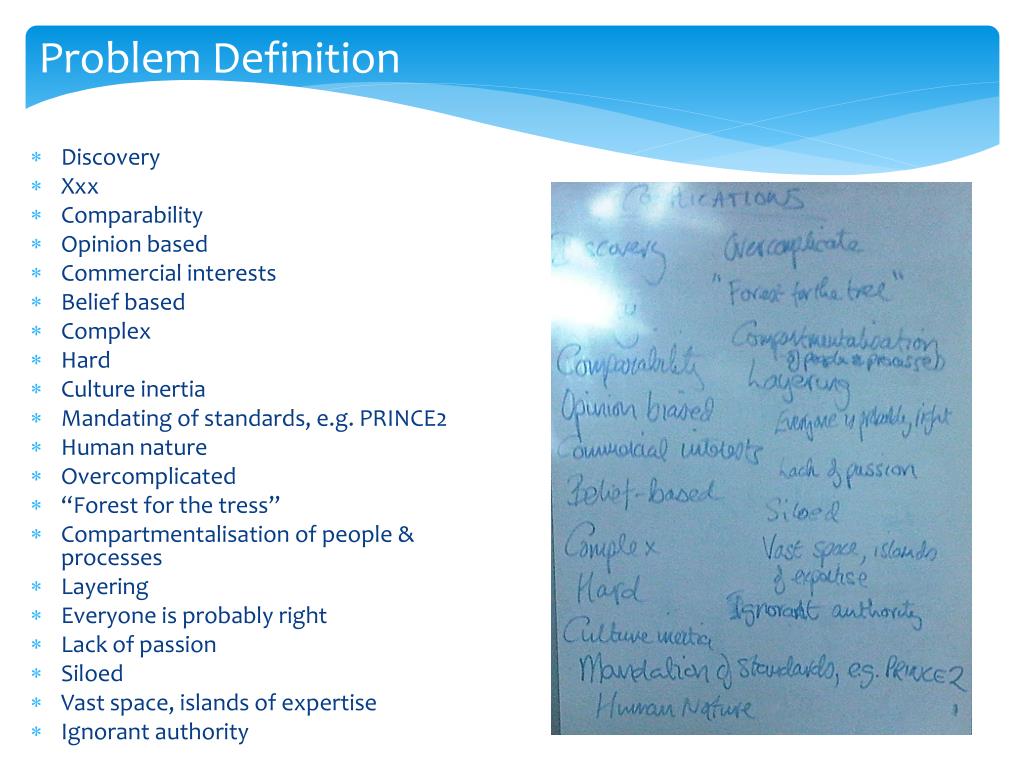 Problem Definition
Discovery
Xxx
Comparability
Opinion based
Commercial interests
Belief based
Complex
Hard
Culture inertia
Mandating of standards, e.g. PRINCE2
Human nature
Overcomplicated
“Forest for the tress”
Compartmentalisation of people &
processes
Layering
Everyone is probably right
Lack of passion
Siloed
Vast space, islands of expertise
Ignorant authority
Discovery
Comparability
Opinion biased
Commercial interests
Belief-based
Complex
Hard
Culture inertia
Mandation of Standards, e.g. PRINCE2
Human Nature
Overcomplicate
"Forest for the tree"
Compartmentalisation
of people & processes
Layering
Everyone is probably right
Lack of passion
Siloed
Vast space, islands
of expertise
Ignorant authority